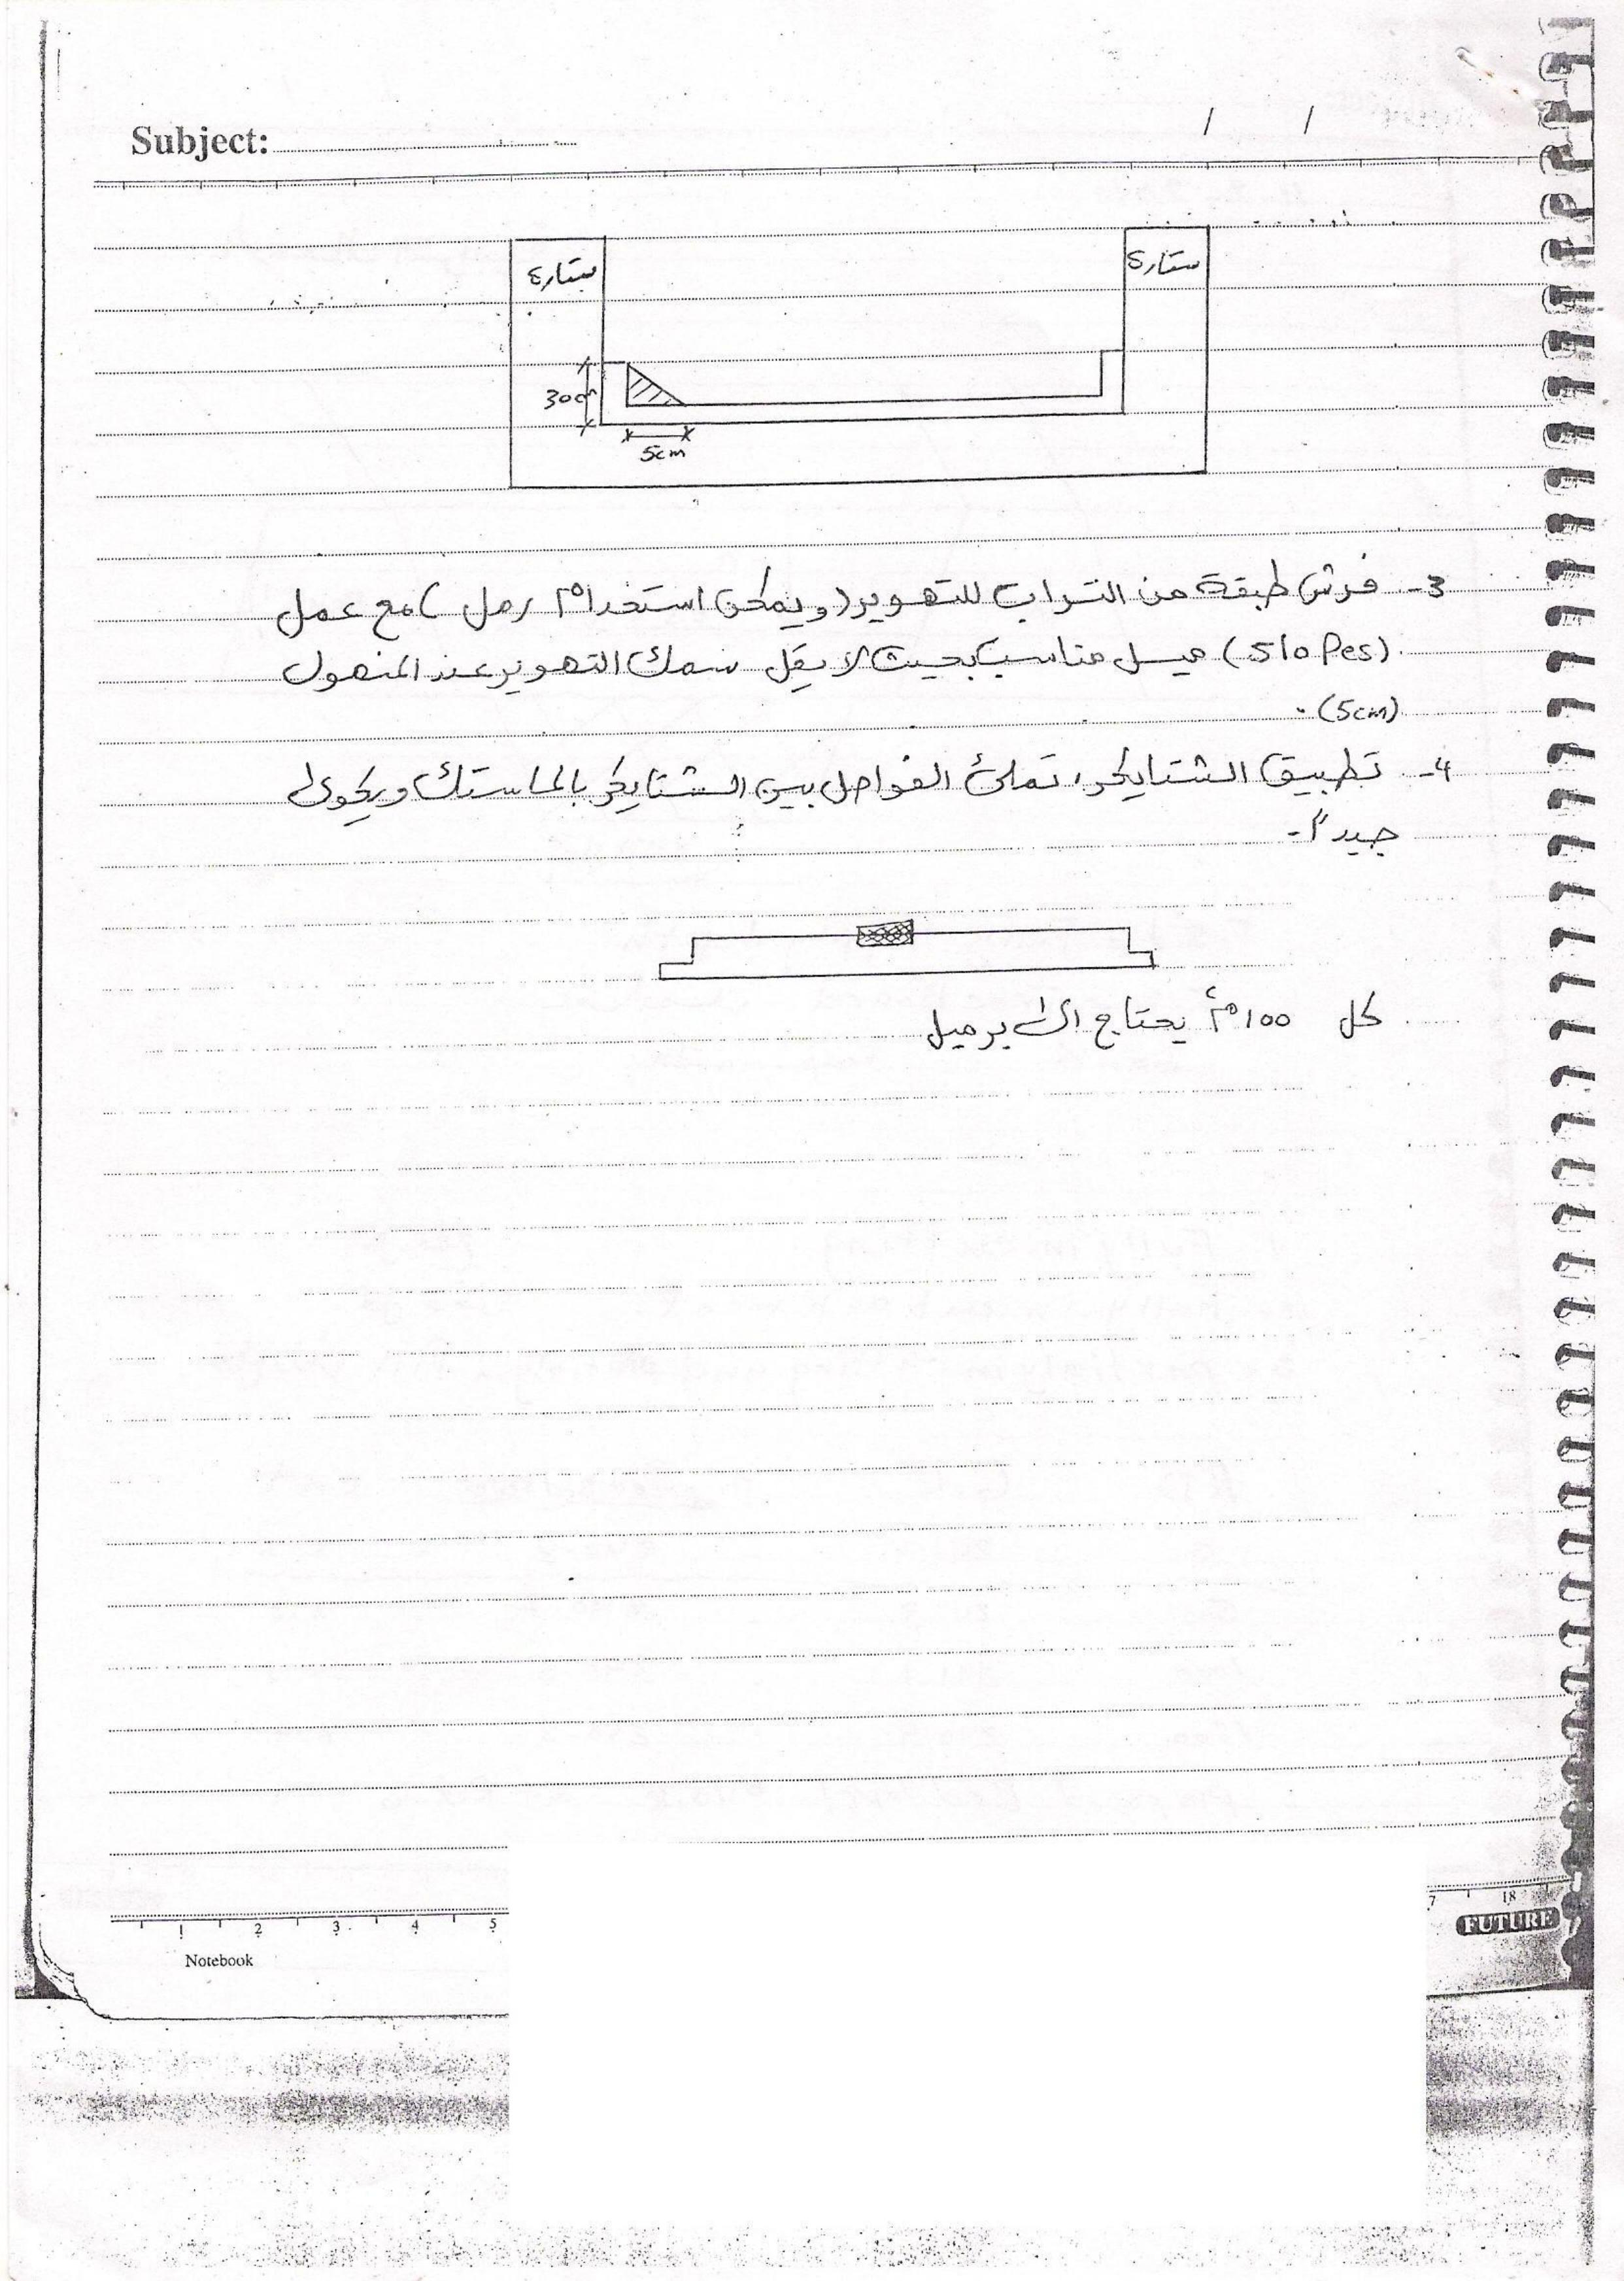 Subject:
/ /
ستارة ستارة
30cm
5cm
3- فرش طبقة من التراب للتهوير (ويمكن استخدام رمل) مع عمل
(Slopes) ميل مناسب بحيث لا يقل سمك التهوير عند المنهول
(5cm).
4- تطبيق الشتايكر، تملئ الفواصل بين الشتايكر بالماستك ويكوى
جيداً.
كل 100م² يحتاج الى برميل
1 2 3 4 5 7 18
FUTURE
Notebook